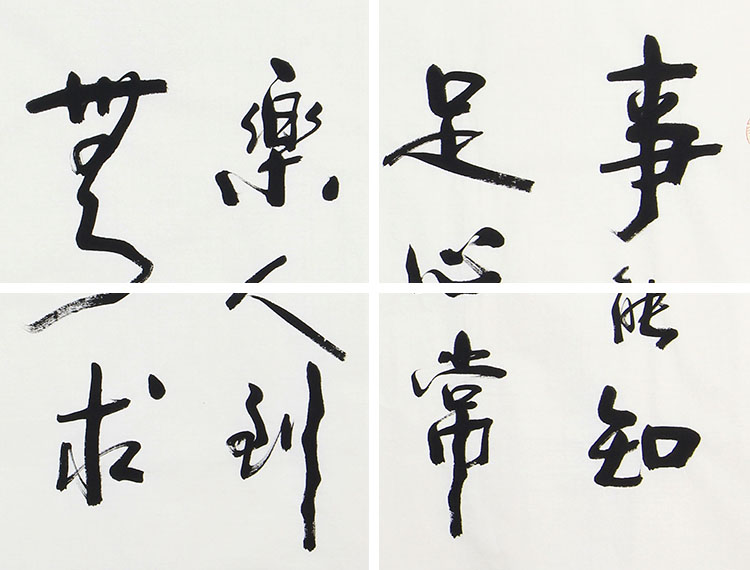 事能知
足心常
樂人到
無求